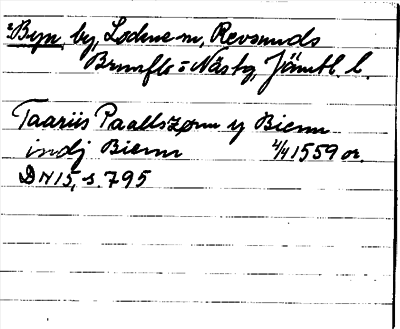 =Byn, by, Lockne sn, Revsunds
Brunflo o Näs tg, Jämtl. l.
Taariis Paallszønn y Bienn
indj Bienn 2/4 1559 or.
DN 15, s. 795